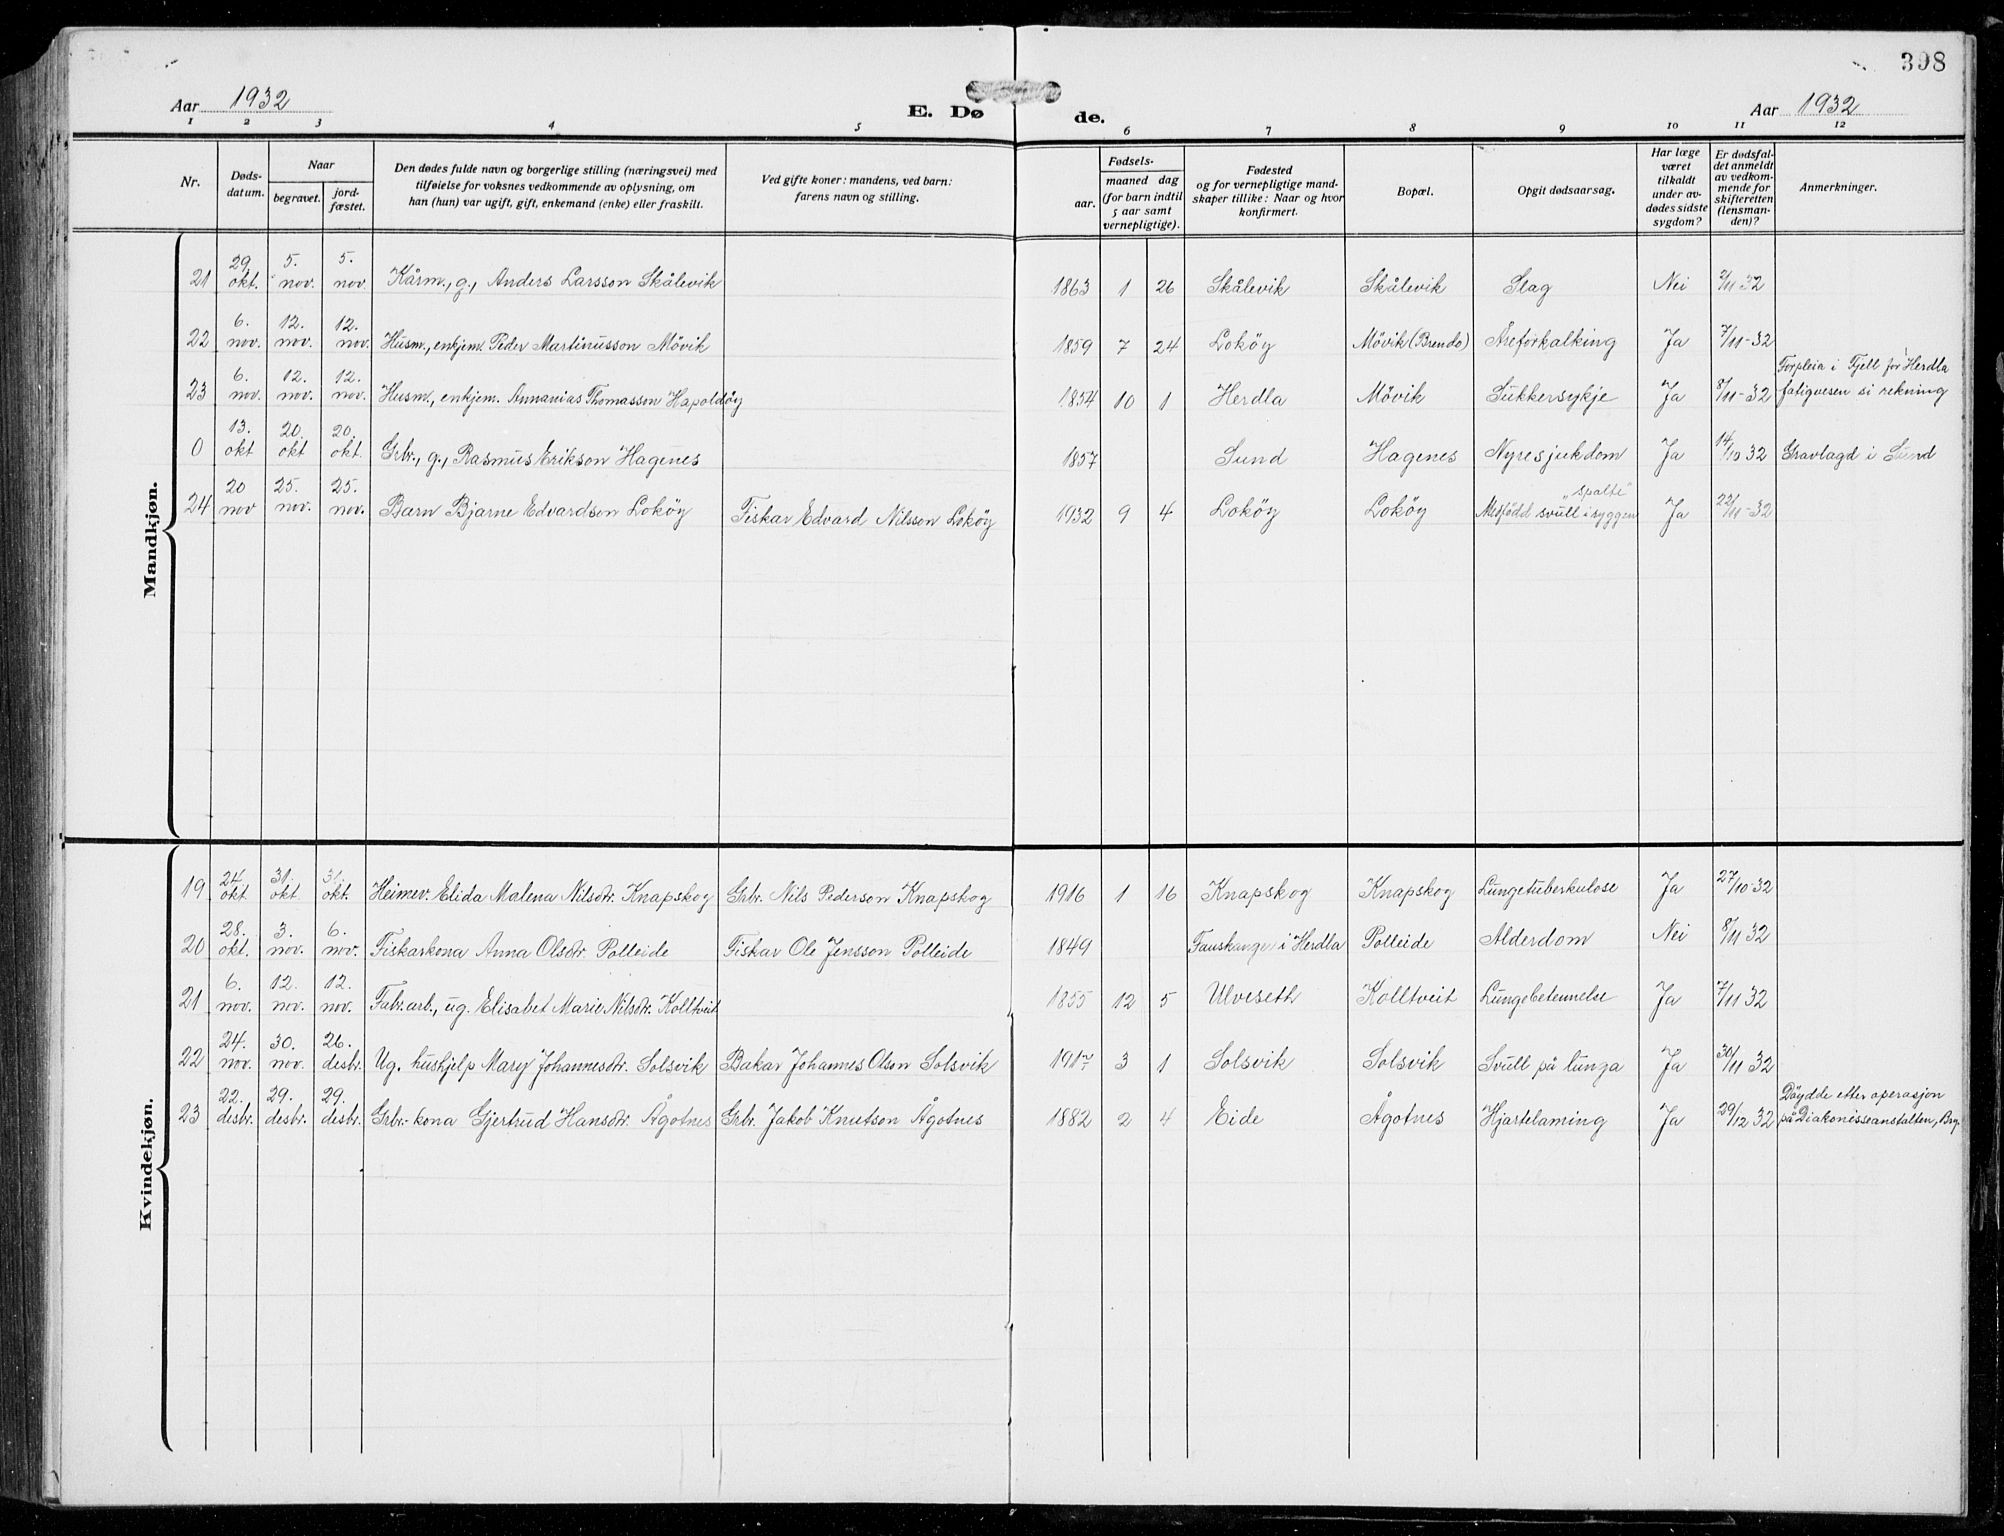 398
Aar 1932
E. Dø de.
Aar 1932
1 2 3 4 5 6 7 8 9 10 11 12
Nr.
Døds-datum.
Naar
begravet.
jord-fæstet.
Den dødes fulde navn og borgerlige stilling (næringsvei) med
tilføielse for voksnes vedkommende av oplysning, om
han (hun) var ugift, gift, enkemand (enke) eller fraskilt.
Ved gifte koner: mandens, ved barn:
farens navn og stilling.
Fødsels-
aar.
maaned dag
(for barn indtil
5 aar samt
vernepligtige).
Fødested
og for vernepligtige mand-
skaper tillike: Naar og hvor
konfirmert.
Bopæl.
Opgit dødsaarsag.
Har læge
været
tilkaldt
under av-
dødes sidste
sygdom?
Er dødsfal-
det anmeldt
av vedkom-
mende for
skifteretten
(lensman-
den)?
Anmerkninger.
Mandkjøn.
21 29. okt. 5. nov. 5. nov. Kårm., g., Anders Larsson Skålevik 1863 1 26 Skålevik Skålevik Slag Nei 2/11 32
22 6. nov. 12. nov. 12. nov. Husm., enkjem. Peder Martinusson Mövik 1859 7 24 Loköy Mövik (Brendo) Åreforkalking Ja 7/11-32
23 6. nov. 12. nov. 12. nov. Husm., enkjem. Annanias Thomasson Hapoldöy 1854 10 1 Herdla Mövik Sukkersykje Ja 8/11-32 Forpleia i Fjell for Herdla
fatigvesen si rekning
0 13. okt 20. okt 20. okt. Grbr., g., Rasmus Erikson Hagenes 1857 Sund Hagenes Nyresjukdom Ja 14/10 32 Gravlagd i Sund
24 20 nov 25. nov. 25. nov. Barn Bjarne Edvardson Loköy Fiskar Edvard Nilsson Loköy 1932 9 4 Loköy Loköy Medfödd svull i ryggen "spalte" Ja 22/11-32
Kvindekjøn.
19 24. okt. 31. okt. 31. okt. Heimev. Elida Malena Nilsdtr. Knapskog Grbr. Nils Pederson Knapskog 1916 1 16 Knapskog Knapskog Lungetuberkulose Ja 27/10-32
20 28. okt. 3. nov. 6. nov. Fiskarkona Anna Olsdtr. Polleide Fiskar Ole Jensson Polleide 1849 Fauskanger i Herdla Polleide Alderdom Nei 8/11 32
21 6. nov. 12. nov. 12. nov. Fabr.arb., ug. Elisabet Marie Nilsdtr. Kolltveit 1855 12 5 Ulveseth Kolltveit Lungebetennelse Ja 7/11 32
22 24. nov. 30. nov. 26. desbr. Ug. hushjelp Mary Johannesdtr. Solsvik Bakar Johannes Olson Solsvik 1917 3 1 Solsvik Solsvik Svull på lunga Ja 30/11 32
23 22. desbr. 29. desbr. 29. desbr. Grbr.-kona Gjertrud Hansdtr. Ågotnes Grbr. Jakob Knutson Ågotnes 1882 2 4 Eide Ågotnes Hjartelaming Ja 29/12 32 Döydde etter operasjon
på Diakonisseanstalten, Brg.